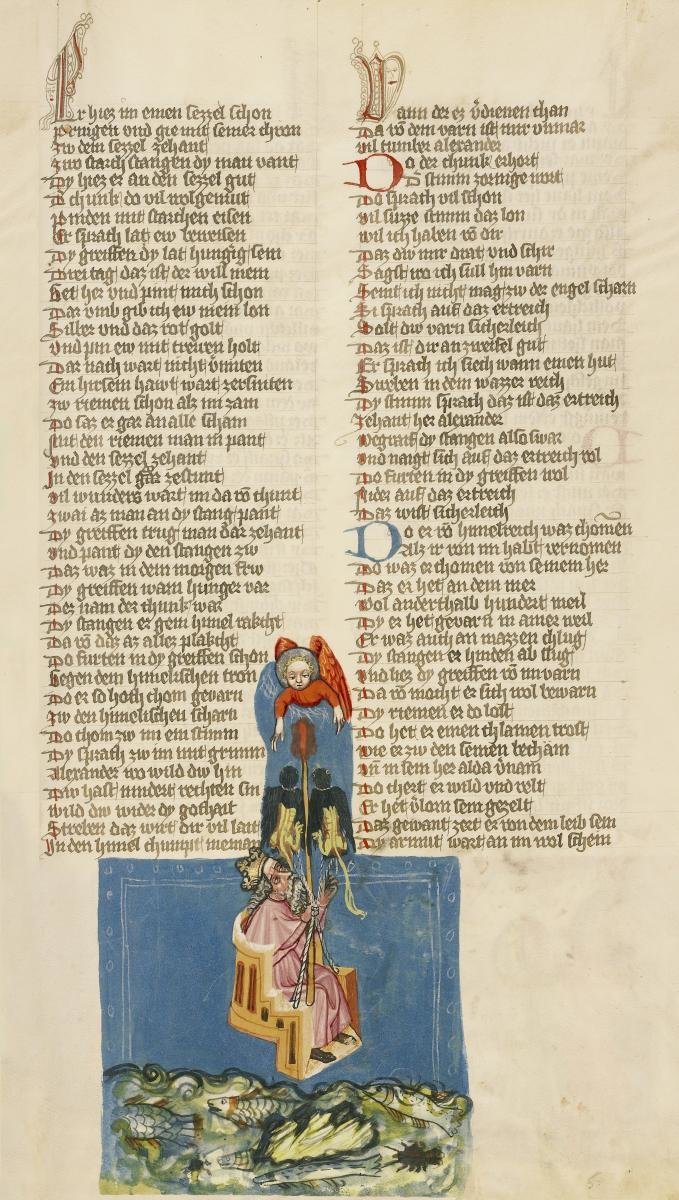 Er hiez im einen sezzel schon
pringen vnd gie mit seiner chron
Zw dem sezzel zehant
Zwo starch stangen dy man vant
Dy hiez er an den sezzel gut
Der chunk do vil wolgemut
Pinden mit starchen eisen
Er sprach lat ew beweisen
Dy greiffen dy lat hungrig sein
Drei tag daz ist der will mein
Get her vnd pint mich schon
Dar vmb gib ich ew mein lon
Silber vnd daz rot golt
Vnd pin ew mit trewen holt
Dar nach wart nicht vmiten
Ein hirsein hawt wart zersniten
Zw riemen schon alz im zam
Do saz er gar an alle scham
Mit den riemen man in pant
Vnd den sezzel zehant
In den sezzel gar zestunt
Vil wunders wart im da von chunt
Zwai az man an dy stang pant
Dy greiffen trug man dar zehant
Vnd pant dy den stangen zw
Daz waz in dem morgen frw
Dy greiffen warn hunger var
Dez nam der chunk war
Dy stangen er gem himel rakcht
Da von daz az allez plakcht
Do furten in dy greiffen schon
Gegen dem himelischen tron
Do er so hoch chom gevarn
Zw den himelischen scharn
Do chom zw im ein stimm
Dy sprach zw im mit grimm
Alexander wo wild dw hin
Dw hast nindert rechten sin
Wild dw wider dy gothait
Streben daz wirt dir vil lait
In den himel chumpt nieman
Wann der ez verdienen chan
Da von dem varn ist mir vnmar
Vil tumber alexander
Do der chunk erhort
Der stimm zornige wort
Do sprach vil schon
Vil suzze stimm daz lon
Wil ich haben von dir
Daz dw mir drat vnd schir
Sagst wo ich sull hin varn
Seint ich nicht mag zw der engel scharn
Si sprach auf daz ertreich
Solt dw varn sicherleich
Daz ist dir an zweifel gut
Er sprach ich siech wann einen hut
Sweben in dem wazzer reich
Dy stimm sprach daz ist daz ertreich
Zehant her alexander
Begraif dy stangen also swar
Vnd naigt sich auf daz ertreich wol
Do furten in dy greiffen wol
Nider auf daz ertreich
Daz wist sicherleich
Do er von himelreich waz chomen
Alz ir von im habt vernomen
Do waz er chomen von seinem her
Daz er het an dem mer
Wol anderthalb hundert meil
Dy er het gevarn in ainer weil
Er waz auch an mazzen chlug
Dy stangen er hinden ab slug
Vnd hiez dy greiffen von im varn
Da von mocht er sich wol bewarn
Dy riemen er do lost
Do het er einen chlainen trost
Wie er zw den seinen becham
Vnd in sein her alda vernam
Do chert er wild vnd velt
Er het verlorn sein gezelt
Daz gewant zert er von dem leib sein
Dy armut wart an im wol schein